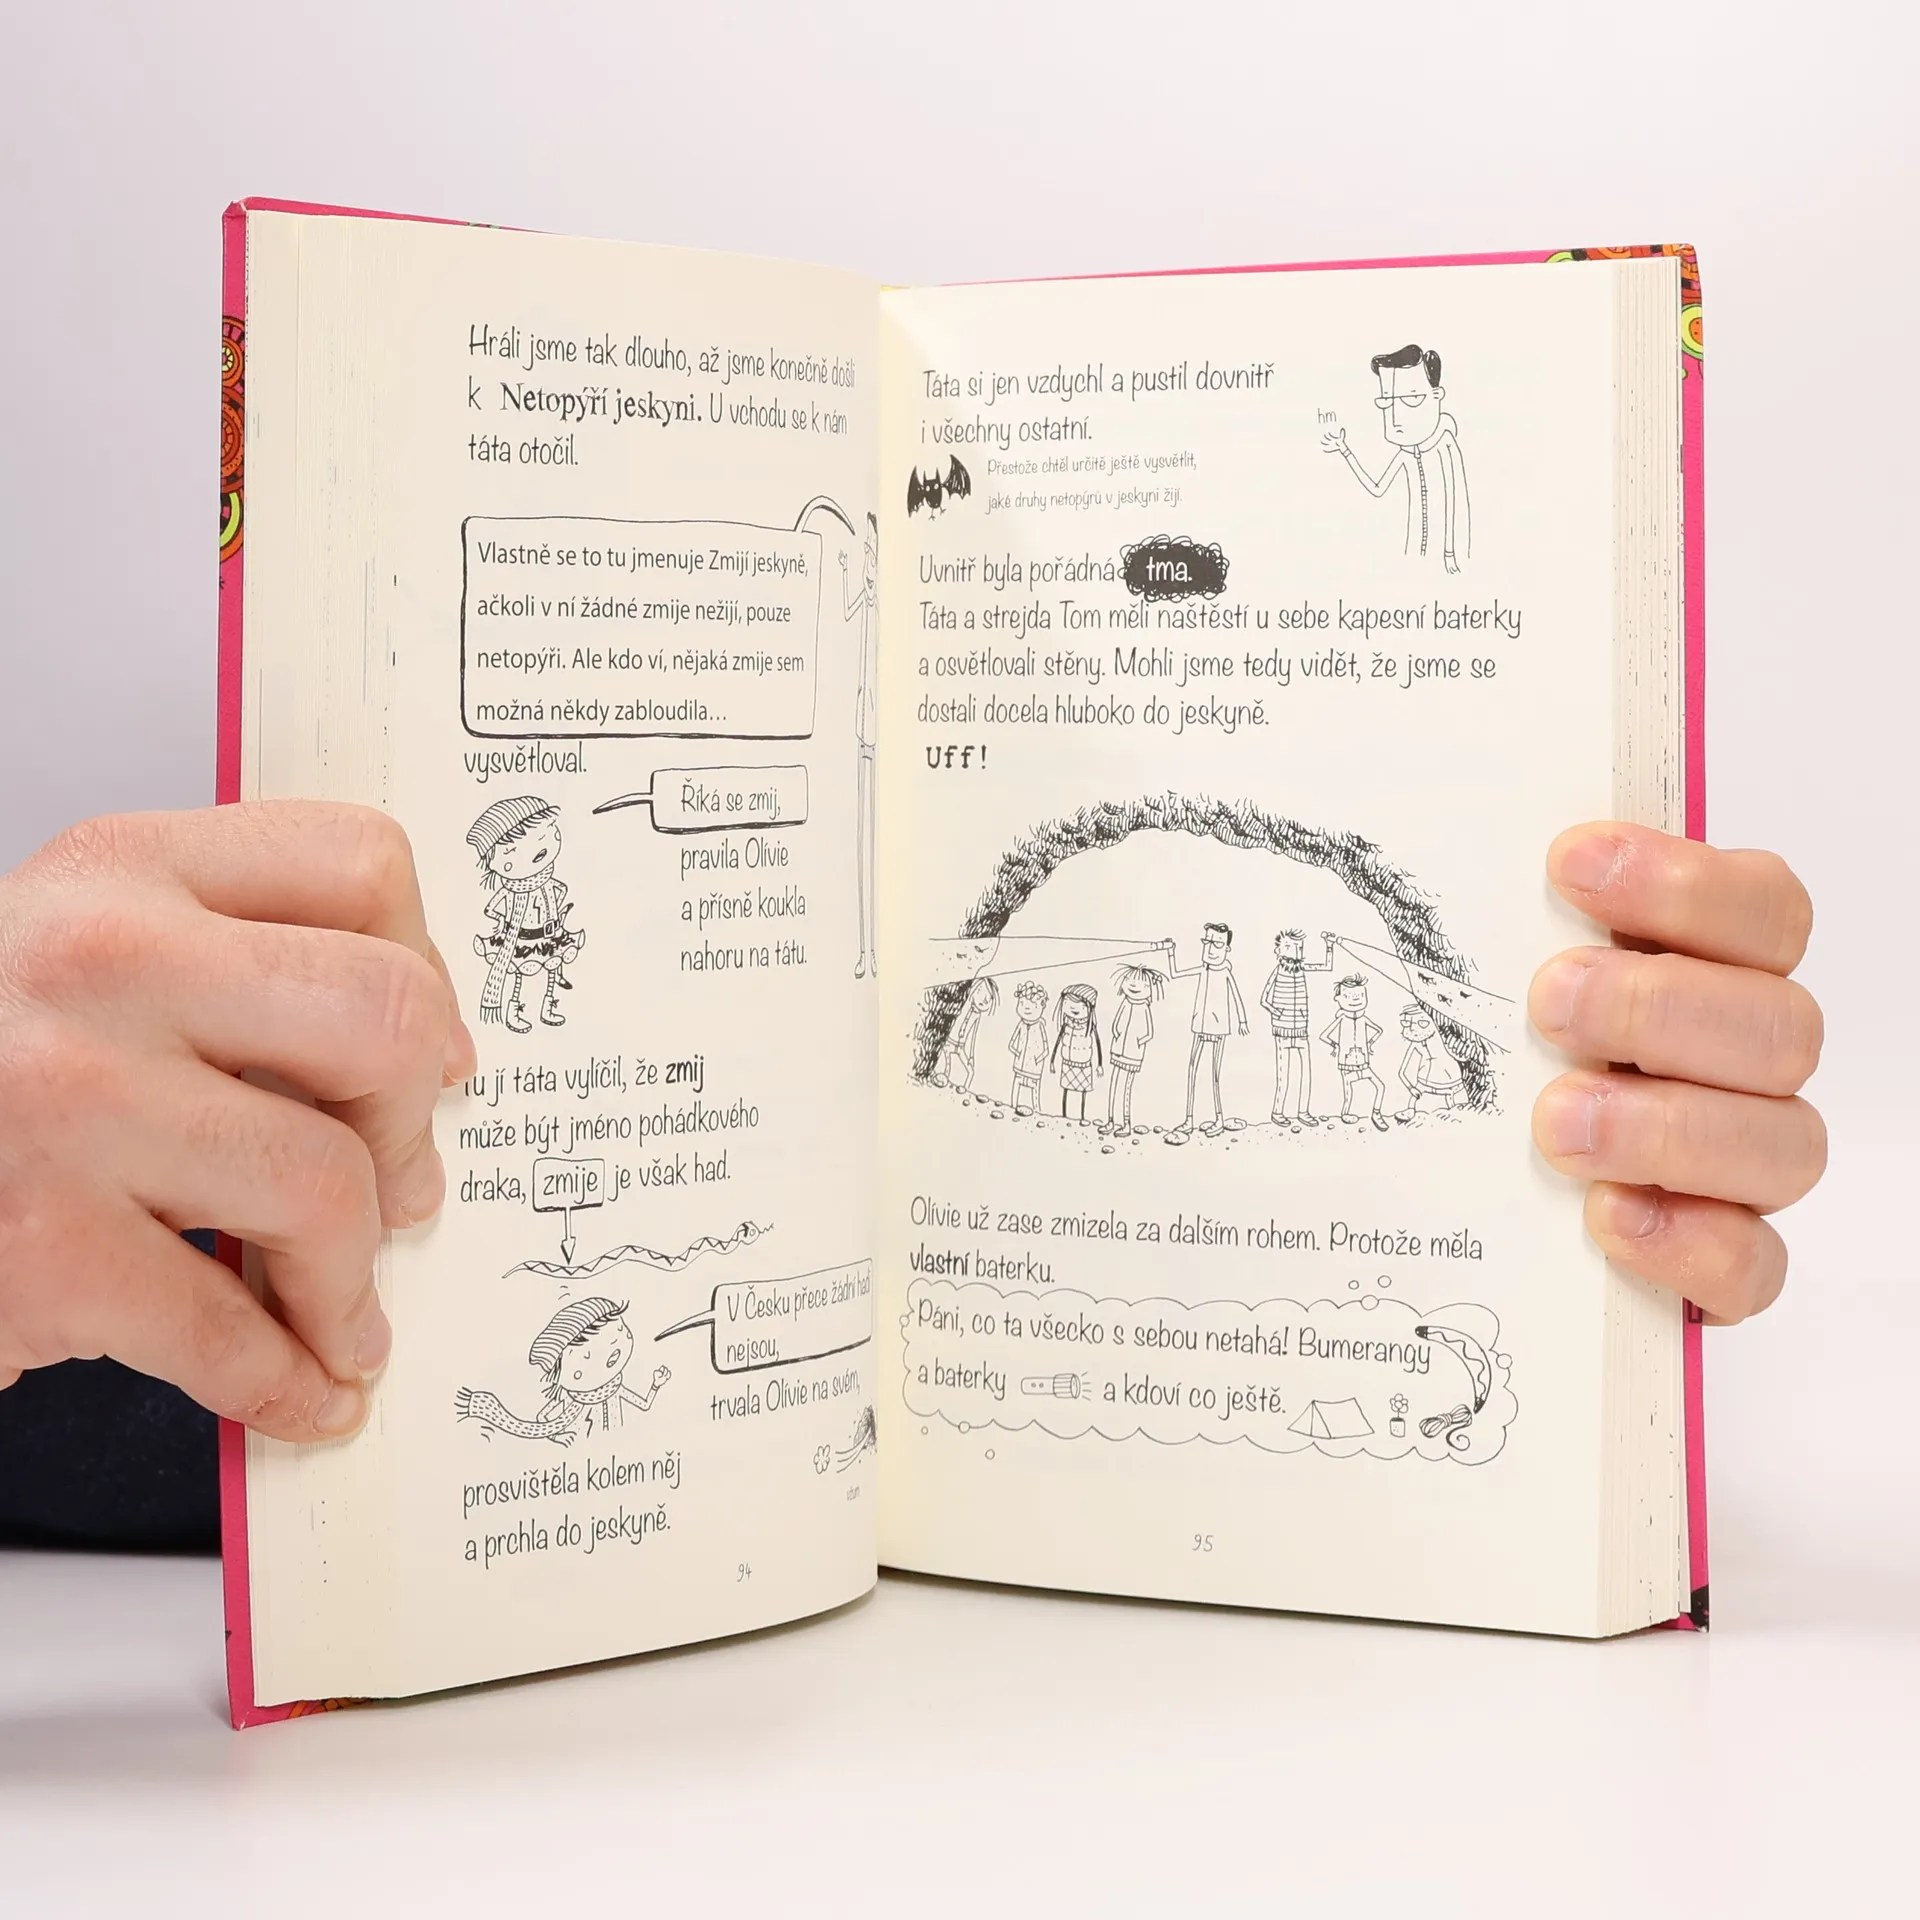 Hráli jsme tak dlouho, až jsme konečně došli
k Netopýří jeskyni. U vchodu se k nám
táta otočil.
Vlastně se to tu jmenuje Zmijí jeskyně,
ačkoli v ní žádné zmije nežijí, pouze
netopýři. Ale kdo ví, nějaká zmije sem
možná někdy zabloudila...
vysvětloval.
Říká se zmij,
pravila Olívie
a přísně koukla
nahoru na tátu.
Tu jí táta vylíčil, že zmij
může být jméno pohádkového
draka, zmije je však had.
V Česku přece žádní hadi
nejsou,
trvala Olívie na svém,
prosvištěla kolem něj
a prchla do jeskyně.
94
Táta si jen vzdychl a pustil dovnitř
i všechny ostatní.
hm
Přestože chtěl určitě ještě vysvětlit,
jaké druhy netopýrů v jeskyni žijí.
Uvnitř byla pořádná tma.
Táta a strejda Tom měli naštěstí u sebe kapesní baterky
a osvětlovali stěny. Mohli jsme tedy vidět, že jsme se
dostali docela hluboko do jeskyně.
Uff!
Olívie už zase zmizela za dalším rohem. Protože měla
vlastní baterku.
Páni, co ta všecko s sebou netahá! Bumerangy
a baterky a kdoví co ještě.
95